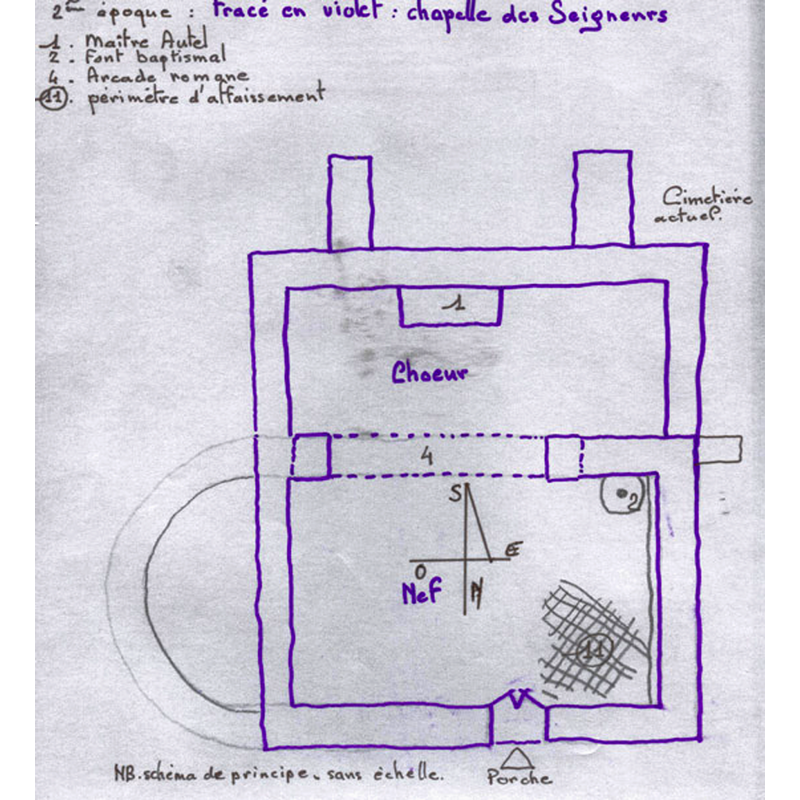 2ème époque : Tracé en violet : chapelle des Seigneurs
1 . Maître Autel
2 . Font baptismal
4 . Arcade romane
11 . périmètre d'affaissement
Cimetière
actuel.
1
Choeur
4
S
2
E
O
Nef
N
11
NB. schéma de principe. sans échelle.
Porche